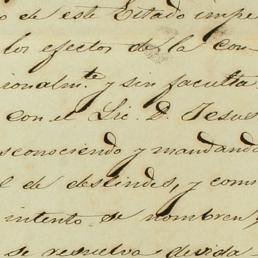 o de este Estado impe
los efectos de la con
cionalm.te y sin faculta
con el Lic. D. Jesus
sconociendo y mandando
l de deslindes, y com
intento se nombren,
se resuelva devida